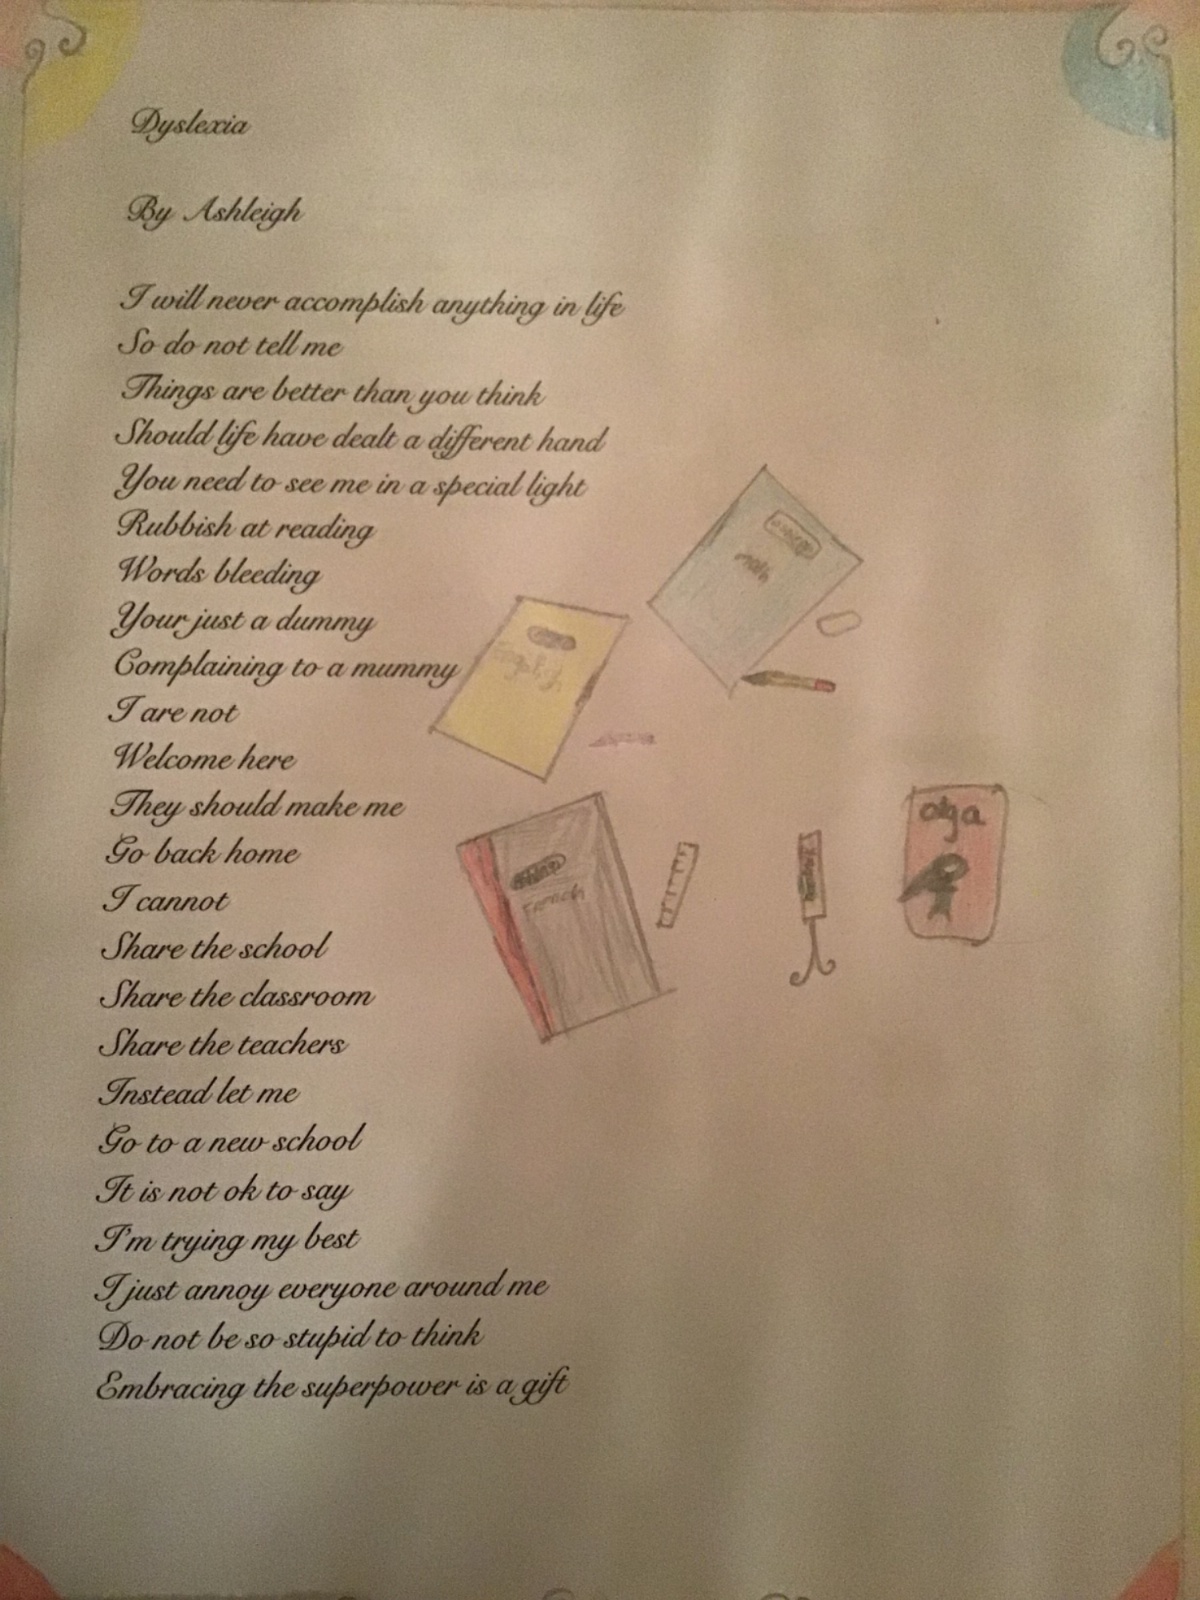 Dyslexia
By Ashleigh
I will never accomplish anything in life
So do not tell me
Things are better than you think
Should life have dealt a different hand
You need to see me in a special light
Rubbish at reading
Words bleeding
Your just a dummy
Complaining to a mummy
I are not
Welcome here
They should make me
Go back home
I cannot
Share the school
Share the classroom
Share the teachers
Instead let me
Go to a new school
It is not ok to say
I'm trying my best
I just annoy everyone around me
Do not be so stupid to think
Embracing the superpower is a gift
math
English
French
olga